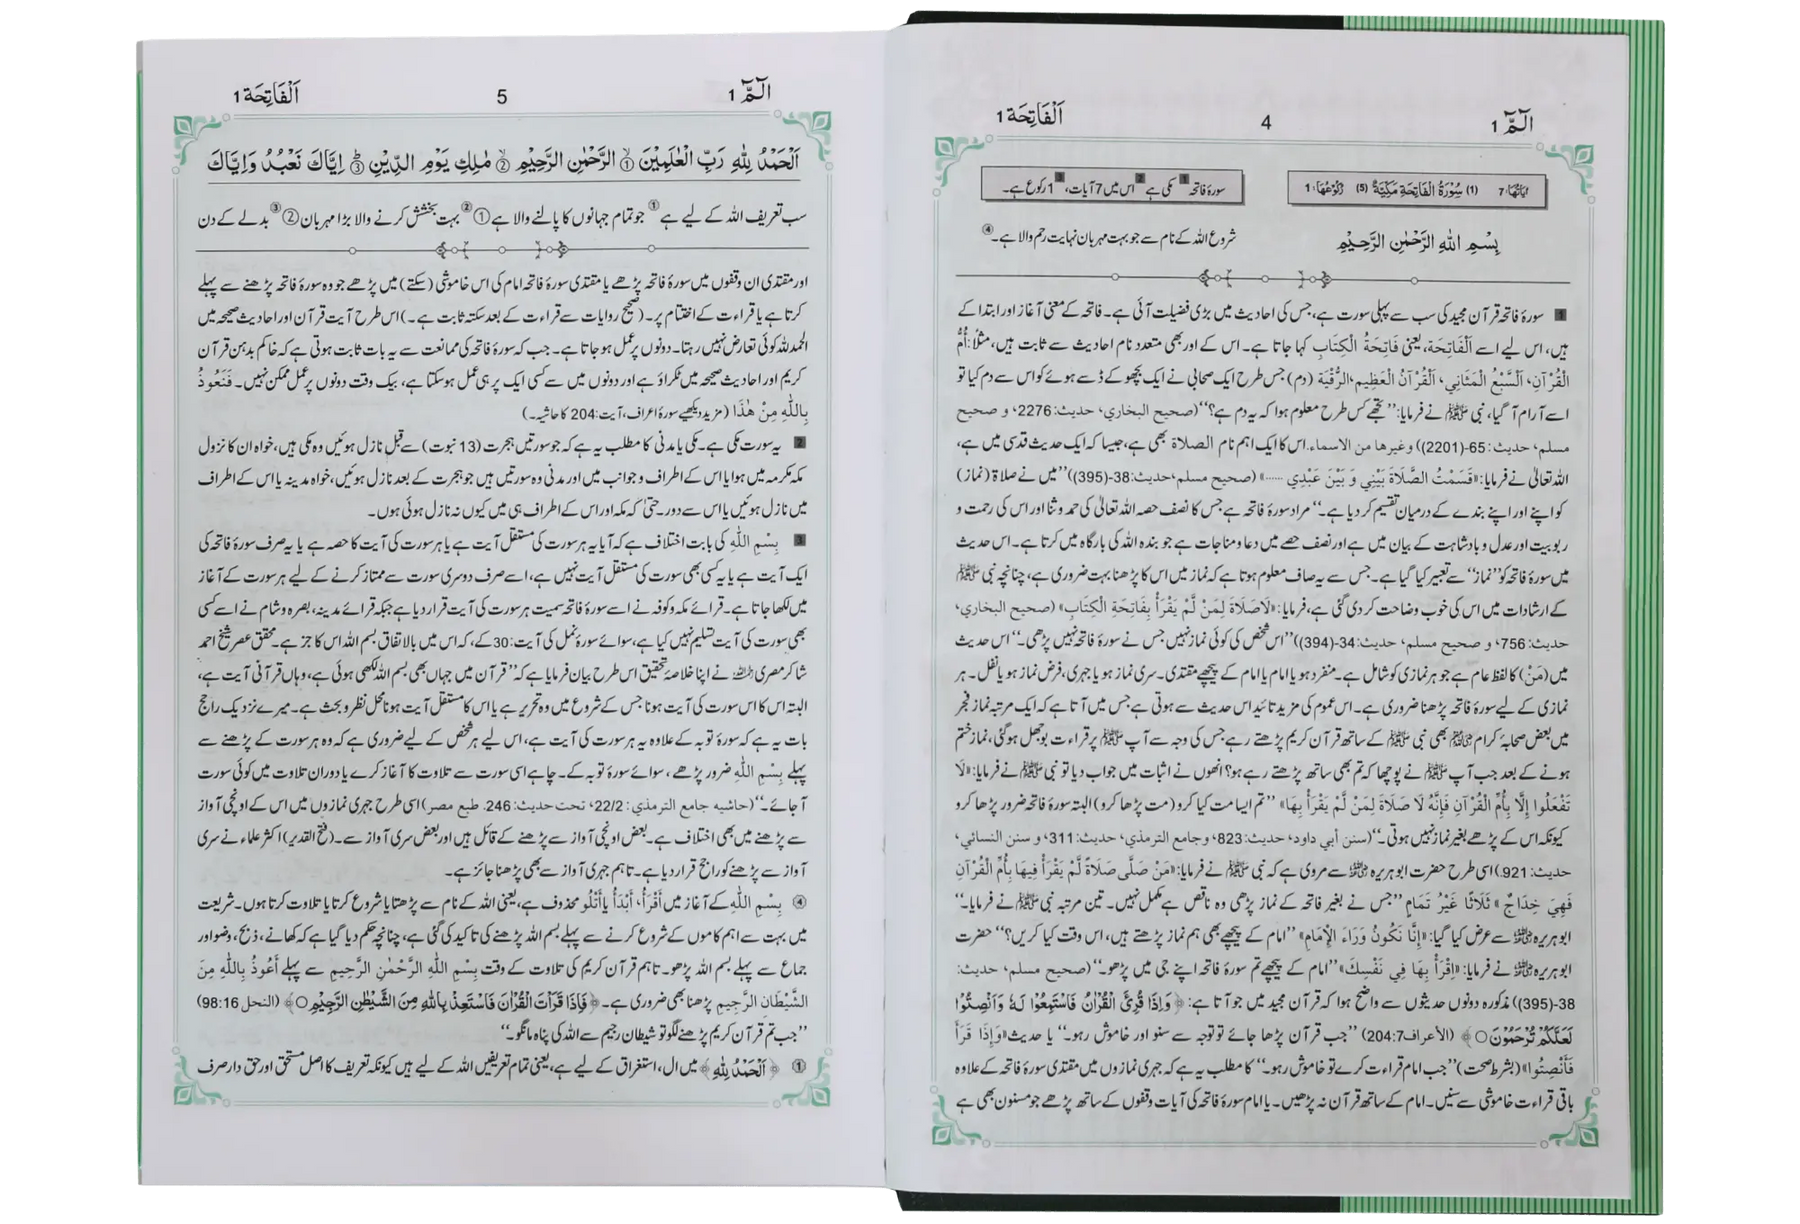 الٓمّٓ 1
4
اَلْفَاتِحَة 1
اٰيَاتُهَا: 7 (1) سُوْرَةُ الْفَاتِحَةِ مَكِّيَّةٌ (5) رُكُوْعُهَا: 1
سورۂ فاتحہ 1 مکی ہے 2 اس میں 7 آیات، 3 1 رکوع ہے۔
بِسْمِ اللّٰهِ الرَّحْمٰنِ الرَّحِيْمِ
شروع اللہ کے نام سے جو بہت مہربان نہایت رحم والا ہے۔ ④
1 سورۂ فاتحہ قرآن مجید کی سب سے پہلی سورت ہے، جس کی احادیث میں بڑی فضیلت آئی ہے۔ فاتحہ کے معنی آغاز اور ابتدا کے
ہیں، اس لیے اسے اَلْفَاتِحَة، یعنی فَاتِحَةُ الْكِتَابِ کہا جاتا ہے۔ اس کے اور بھی متعدد نام احادیث سے ثابت ہیں، مثلاً: أُمُّ
الْقُرْآنِ، اَلسَّبْعُ الْمَثَانِي، اَلْقُرْآنُ الْعَظِيم، الرُّقْيَة (دم) جس طرح ایک صحابی نے ایک بچھو کے ڈسے ہوئے کو اس سے دم کیا تو
اسے آرام آ گیا، نبی ﷺ نے فرمایا: ’’تجھے کس طرح معلوم ہوا کہ یہ دم ہے؟‘‘ (صحيح البخاري، حديث: 2276، و صحيح
مسلم، حديث: 65-(2201)) وغيرها من الاسماء. اس کا ایک اہم نام الصلاة بھی ہے، جیسا کہ ایک حدیث قدسی میں ہے،
اللہ تعالیٰ نے فرمایا: «قَسَمْتُ الصَّلَاةَ بَيْنِي وَ بَيْنَ عَبْدِي ......» (صحيح مسلم، حديث: 38-(395)) ’’میں نے صلاۃ (نماز)
کو اپنے اور اپنے بندے کے درمیان تقسیم کر دیا ہے۔‘‘ مراد سورۂ فاتحہ ہے جس کا نصف حصہ اللہ تعالیٰ کی حمد و ثنا اور اس کی رحمت و
ربوبیت اور عدل و بادشاہت کے بیان میں ہے اور نصف حصے میں دعا و مناجات ہے جو بندہ اللہ کی بارگاہ میں کرتا ہے۔ اس حدیث
میں سورۂ فاتحہ کو ’’نماز‘‘ سے تعبیر کیا گیا ہے۔ جس سے یہ صاف معلوم ہوتا ہے کہ نماز میں اس کا پڑھنا بہت ضروری ہے، چنانچہ نبی ﷺ
کے ارشادات میں اس کی خوب وضاحت کر دی گئی ہے، فرمایا: «لَاصَلَاةَ لِمَنْ لَّمْ يَقْرَأْ بِفَاتِحَةِ الْكِتَابِ» (صحيح البخاري،
حديث: 756، و صحيح مسلم، حديث: 34-(394)) ’’اس شخص کی کوئی نماز نہیں جس نے سورۂ فاتحہ نہیں پڑھی۔‘‘ اس حدیث
میں (مَنْ) کا لفظ عام ہے جو ہر نمازی کو شامل ہے۔ منفرد ہو یا امام یا امام کے پیچھے مقتدی۔ سری نماز ہو یا جہری، فرض نماز ہو یا نفل۔ ہر
نمازی کے لیے سورۂ فاتحہ پڑھنا ضروری ہے۔ اس عموم کی مزید تائید اس حدیث سے ہوتی ہے جس میں آتا ہے کہ ایک مرتبہ نماز فجر
میں بعض صحابۂ کرام رضی اللہ عنہم بھی نبی ﷺ کے ساتھ قرآن کریم پڑھتے رہے جس کی وجہ سے آپ ﷺ پر قراءت بوجھل ہو گئی، نماز ختم
ہونے کے بعد جب آپ ﷺ نے پوچھا کہ تم بھی ساتھ پڑھتے رہے ہو؟ انھوں نے اثبات میں جواب دیا تو نبی ﷺ نے فرمایا: «لَا
تَفْعَلُوا إِلَّا بِأُمِّ الْقُرْآنِ فَإِنَّهُ لَا صَلَاةَ لِمَنْ لَّمْ يَقْرَأْ بِهَا» ’’تم ایسا مت کیا کرو (مت پڑھا کرو) البتہ سورۂ فاتحہ ضرور پڑھا کرو
کیونکہ اس کے پڑھے بغیر نماز نہیں ہوتی۔‘‘ (سنن أبي داود، حديث: 823، وجامع الترمذي، حديث: 311، و سنن النسائي،
حديث: 921) اسی طرح حضرت ابوہریرہ رضی اللہ عنہ سے مروی ہے کہ نبی ﷺ نے فرمایا: «مَنْ صَلَّى صَلَاةً لَّمْ يَقْرَأْ فِيهَا بِأُمِّ الْقُرْآنِ
فَهِيَ خِدَاجٌ» ثَلَاثًا غَيْرُ تَمَامٍ ’’جس نے بغیر فاتحہ کے نماز پڑھی وہ ناقص ہے مکمل نہیں۔ تین مرتبہ نبی ﷺ نے فرمایا۔‘‘
ابوہریرہ رضی اللہ عنہ سے عرض کیا گیا: «إِنَّا نَكُونُ وَرَاءَ الْإِمَامِ» ’’امام کے پیچھے بھی ہم نماز پڑھتے ہیں، اس وقت کیا کریں؟‘‘ حضرت
ابوہریرہ رضی اللہ عنہ نے فرمایا: «اِقْرَأْ بِهَا فِي نَفْسِكَ» ’’امام کے پیچھے تم سورۂ فاتحہ اپنے جی میں پڑھو۔‘‘ (صحيح مسلم، حديث:
38-(395)) مذکورہ دونوں حدیثوں سے واضح ہوا کہ قرآن مجید میں جو آتا ہے: ﴿وَاِذَا قُرِئَ الْقُرْاٰنُ فَاسْتَمِعُوْا لَهٗ وَاَنْصِتُوْا
لَعَلَّكُمْ تُرْحَمُوْنَ ○﴾ (الأعراف 204:7) ’’جب قرآن پڑھا جائے تو توجہ سے سنو اور خاموش رہو۔‘‘ یا حدیث «وَإِذَا قَرَأَ
فَأَنْصِتُوا» (بشرط صحت) ’’جب امام قراءت کرے تو خاموش رہو۔‘‘ کا مطلب یہ ہے کہ جہری نمازوں میں مقتدی سورۂ فاتحہ کے علاوہ
باقی قراءت خاموشی سے سنیں۔ امام کے ساتھ قرآن نہ پڑھیں۔ یا امام سورۂ فاتحہ کی آیات وقفوں کے ساتھ پڑھے جو مسنون بھی ہے
الٓمّٓ 1
5
اَلْفَاتِحَة 1
اَلْحَمْدُ لِلّٰهِ رَبِّ الْعٰلَمِيْنَ ① الرَّحْمٰنِ الرَّحِيْمِ ② مٰلِكِ يَوْمِ الدِّيْنِ ③ اِيَّاكَ نَعْبُدُ وَاِيَّاكَ
سب تعریف اللہ کے لیے ہے ① جو تمام جہانوں کا پالنے والا ہے ① ② بہت بخشش کرنے والا بڑا مہربان ② ③ بدلے کے دن
اور مقتدی ان وقفوں میں سورۂ فاتحہ پڑھے یا مقتدی سورۂ فاتحہ امام کی اس خاموشی (سکتے) میں پڑھے جو وہ سورۂ فاتحہ پڑھنے سے پہلے
کرتا ہے یا قراءت کے اختتام پر۔ (صحیح روایات سے قراءت کے بعد سکتہ ثابت ہے۔) اس طرح آیت قرآن اور احادیث صحیحہ میں
الحمدللہ کوئی تعارض نہیں رہتا۔ دونوں پر عمل ہو جاتا ہے۔ جب کہ سورۂ فاتحہ کی ممانعت سے یہ بات ثابت ہوتی ہے کہ خاکم بدہن قرآن
کریم اور احادیث صحیحہ میں ٹکراؤ ہے اور دونوں میں سے کسی ایک پر ہی عمل ہو سکتا ہے، بیک وقت دونوں پر عمل ممکن نہیں۔ فَنَعُوذُ
بِاللّٰهِ مِنْ هٰذَا (مزید دیکھیے سورۂ اعراف، آیت: 204 کا حاشیہ۔)
2 یہ سورت مکی ہے۔ مکی یا مدنی کا مطلب یہ ہے کہ جو سورتیں ہجرت (13 نبوت) سے قبل نازل ہوئیں وہ مکی ہیں، خواہ ان کا نزول
مکہ مکرمہ میں ہوا یا اس کے اطراف و جوانب میں اور مدنی وہ سورتیں ہیں جو ہجرت کے بعد نازل ہوئیں، خواہ مدینہ یا اس کے اطراف
میں نازل ہوئیں یا اس سے دور۔ حتیٰ کہ مکہ اور اس کے اطراف ہی میں کیوں نہ نازل ہوئی ہوں۔
3 بِسْمِ اللّٰهِ کی بابت اختلاف ہے کہ آیا یہ ہر سورت کی مستقل آیت ہے یا ہر سورت کی آیت کا حصہ ہے یا یہ صرف سورۂ فاتحہ کی
ایک آیت ہے یا یہ کسی بھی سورت کی مستقل آیت نہیں ہے، اسے صرف دوسری سورت سے ممتاز کرنے کے لیے ہر سورت کے آغاز
میں لکھا جاتا ہے۔ قرائے مکہ و کوفہ نے اسے سورۂ فاتحہ سمیت ہر سورت کی آیت قرار دیا ہے جبکہ قرائے مدینہ، بصرہ و شام نے اسے کسی
بھی سورت کی آیت تسلیم نہیں کیا ہے، سوائے سورۂ نمل کی آیت: 30 کے، کہ اس میں بالاتفاق بسم اللہ اس کا جز ہے۔ محقق عصر شیخ احمد
شاکر مصری رحمہ اللہ نے اپنا خلاصۂ تحقیق اس طرح بیان فرمایا ہے کہ ’’قرآن میں جہاں بھی بسم اللہ لکھی ہوئی ہے، وہاں قرآنی آیت ہے،
البتہ اس کا اس سورت کی آیت ہونا جس کے شروع میں وہ تحریر ہے یا اس کا مستقل آیت ہونا محل نظر و بحث ہے۔ میرے نزدیک راجح
بات یہ ہے کہ سورۂ توبہ کے علاوہ یہ ہر سورت کی آیت ہے، اس لیے ہر شخص کے لیے ضروری ہے کہ وہ ہر سورت کے پڑھنے سے
پہلے بِسْمِ اللّٰهِ ضرور پڑھے، سوائے سورۂ توبہ کے۔ چاہے اسی سورت سے تلاوت کا آغاز کرے یا دوران تلاوت میں کوئی سورت
آ جائے۔‘‘ (حاشيه جامع الترمذي: 22/2، تحت حديث: 246. طبع مصر) اسی طرح جہری نمازوں میں اس کے اونچی آواز
سے پڑھنے میں بھی اختلاف ہے۔ بعض اونچی آواز سے پڑھنے کے قائل ہیں اور بعض سری آواز سے۔ (فتح القدیر) اکثر علماء نے سری
آواز سے پڑھنے کو راجح قرار دیا ہے۔ تاہم جہری آواز سے بھی پڑھنا جائز ہے۔
④ بِسْمِ اللّٰهِ کے آغاز میں أَقْرَأُ، أَبْدَأُ یا أَتْلُو محذوف ہے، یعنی اللہ کے نام سے پڑھتا یا شروع کرتا یا تلاوت کرتا ہوں۔ شریعت
میں بہت سے اہم کاموں کے شروع کرنے سے پہلے بسم اللہ پڑھنے کی تاکید کی گئی ہے، چنانچہ حکم دیا گیا ہے کہ کھانے، ذبح، وضو اور
جماع سے پہلے بسم اللہ پڑھو۔ تاہم قرآن کریم کی تلاوت کے وقت بِسْمِ اللّٰهِ الرَّحْمٰنِ الرَّحِيمِ سے پہلے أَعُوذُ بِاللّٰهِ مِنَ
الشَّيْطَانِ الرَّجِيمِ پڑھنا بھی ضروری ہے۔ ﴿فَاِذَا قَرَاْتَ الْقُرْاٰنَ فَاسْتَعِذْ بِاللّٰهِ مِنَ الشَّيْطٰنِ الرَّجِيْمِ ○﴾ (النحل 98:16)
’’جب تم قرآن کریم پڑھنے لگو تو شیطان رجیم سے اللہ کی پناہ مانگو۔‘‘
① ﴿اَلْحَمْدُ لِلّٰهِ﴾ میں ال، استغراق کے لیے ہے، یعنی تمام تعریفیں اللہ کے لیے ہیں کیونکہ تعریف کا اصل مستحق اور حق دار صرف